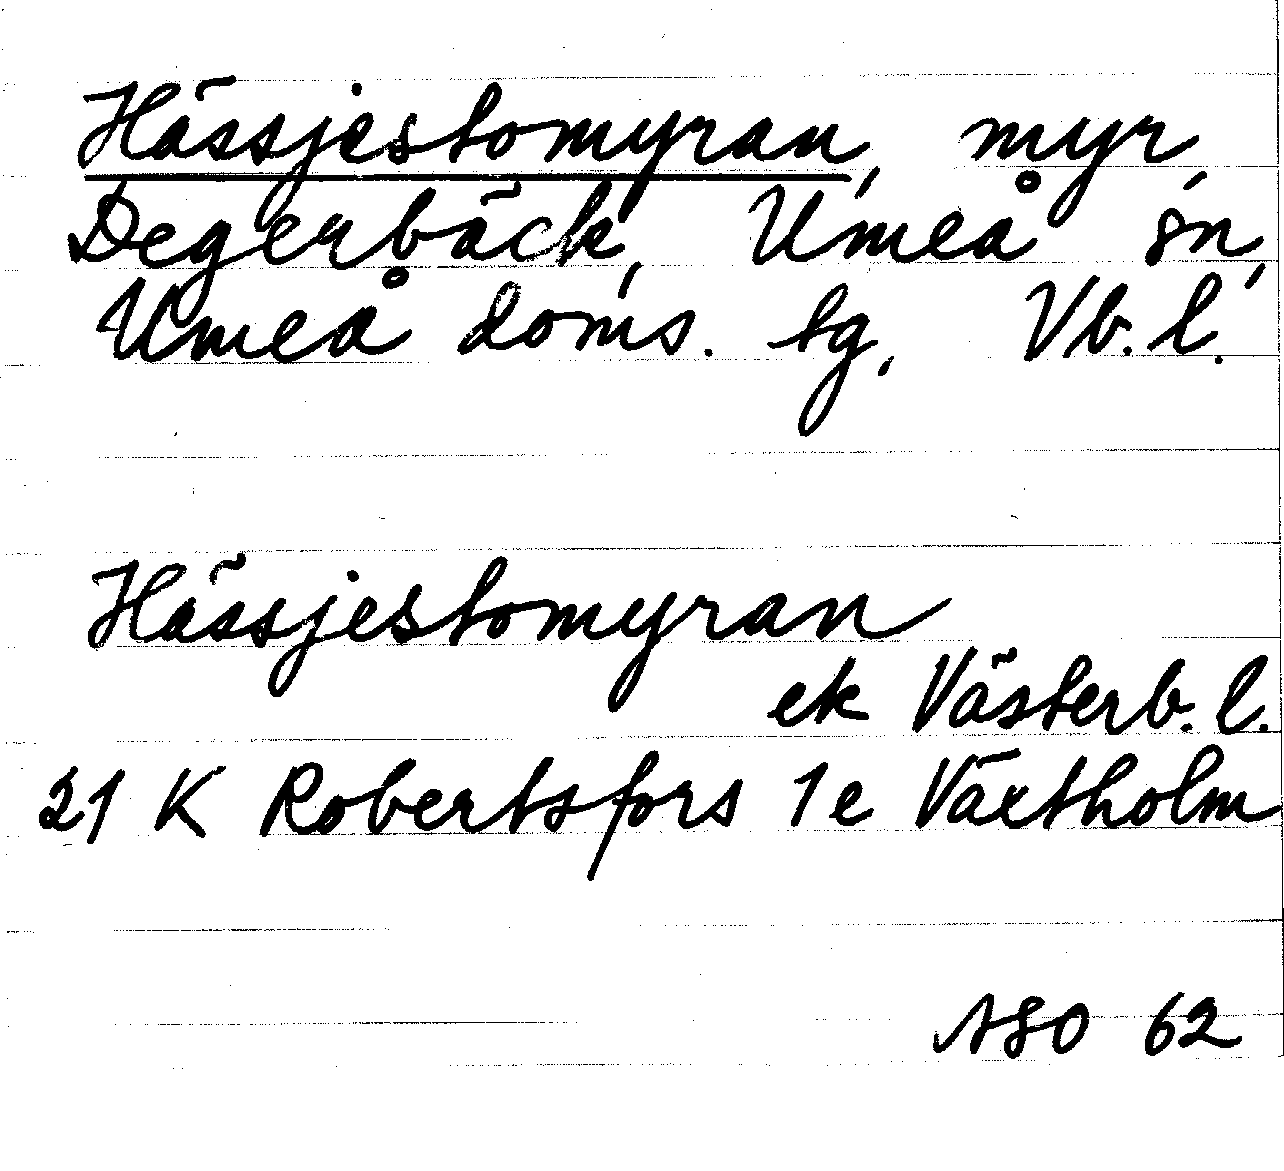 Hässjestomyran, myr,
Degerbäck, Umeå sn,
Umeå doms. tg, Vb. l.
Hässjestomyran
ek Västerb. l.
21 K Robertsfors 1e Växtholm
ASO 62